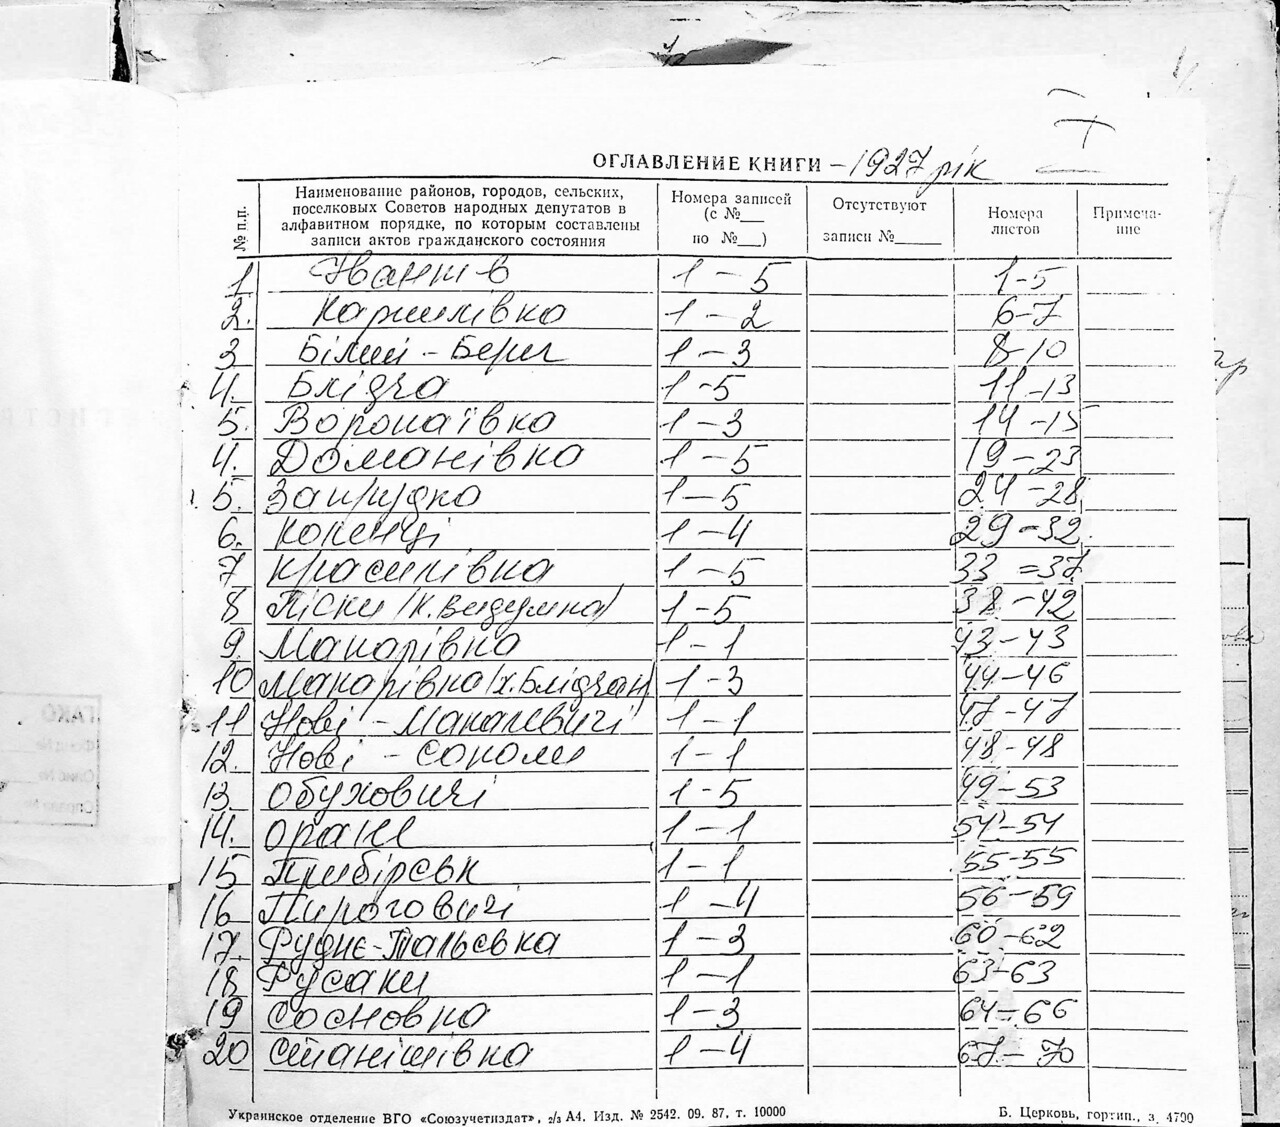 I
ОГЛАВЛЕНИЕ КНИГИ – 1927 рік
№ п.п.
Наименование районов, городов, сельских, поселковых Советов народных депутатов в алфавитном порядке, по которым составлены записи актов гражданского состояния
Номера записей (с №__ по №__)
Отсутствуют записи №____
Номера листов
Примеча-ние
1 Іванків 1 – 5 1-5
2. Каршилівка 1 – 2 6-7
3 Білий - Берег 1 – 3 8-10
4. Блідча 1 - 5 11-13
5. Воропаївка 1 – 3 14-15
4. Доманівка 1 – 5 19-23
5. Запрудка 1 – 5 24-28
6. Коленці 1 – 4 29-32
7 Красилівка 1 – 5 33 =37
8 Піски /К. Видумка/ 1 – 5 38-42
9. Макарівка 1 – 1 43-43
10 Макарівка /х. Блідчан/ 1 – 3 44-46
11 Нові - Макалевичі 1 – 1 47-47
12. Нові - Соколи 1 – 1 48-48
13. Обуховичі 1 – 5 49-53
14. Оране 1 – 1 54-54
15 Прибірськ 1 – 1 55-55
16 Пироговичі 1 – 4 56-59
17. Рудиє-Тальська 1 – 3 60-62
18 Русаки 1 – 1 63-63
19 Сосновка 1 – 3 64-66
20 Станішівка 1 – 4 67-70
Украинское отделение ВГО «Союзучетиздат», 2/3 А4. Изд. № 2542. 09. 87, т. 10000
Б. Церковь, гортип., з. 4790
ГАКО
Фонд №
Опис №
Справа №